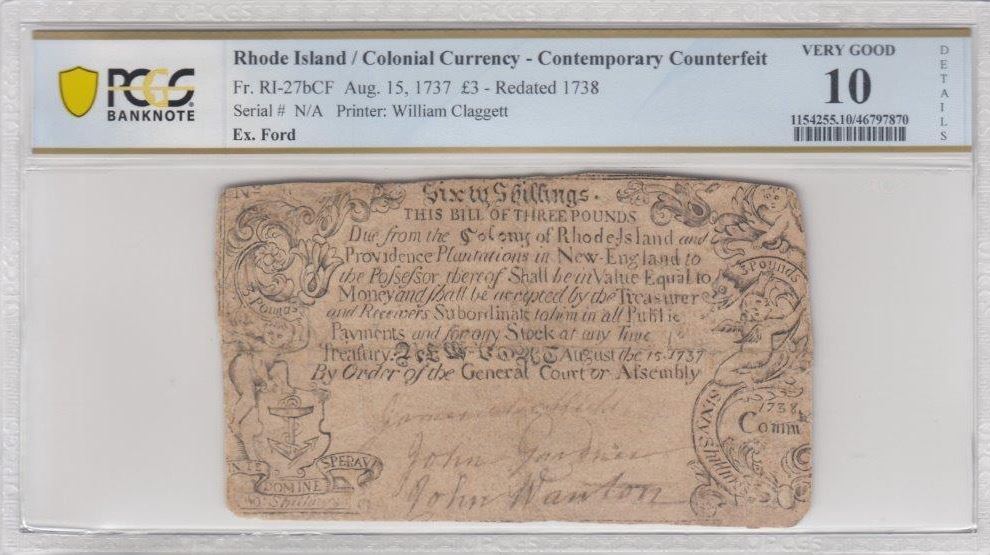 PCGS
BANKNOTE
Rhode Island / Colonial Currency - Contemporary Counterfeit
Fr. RI-27bCF Aug. 15, 1737 £3 - Redated 1738
Serial # N/A Printer: William Claggett
Ex. Ford
VERY GOOD
10
1154255.10/46797870
DETAILS
No
Sixty Shillings.
THIS BILL OF THREE POUNDS
Due from the Colony of Rhode Island and
Providence Plantations in New-England to
the Possessor thereof Shall be in Value Equal to
Money and shall be accepted by the Treasurer
and Receivers Subordinate to him in all Publie
Payments and for any Stock at any Time
Treasury. NEWPORT August the 15. 1737
By Order of the General Court or Assembly
John Gardner
John Wanton
3 Pounds
3 Pounds
1738
Comm
SIXTY Shillin
NTE SPERAV
DOMINE